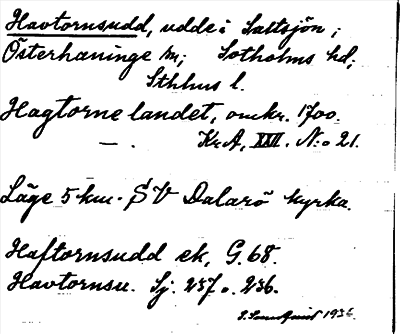 Havtornsudd, udde i Saltsjön;
Österhaninge sn; Sotholms hd;
Sthlms l.
Hagtorne landet, omkr. 1700.
— . Kr.A, XXII. N:o 21.
Läge 5 km. SV Dalarö kyrka.
Haftornsudd ek, G. 68.
Havtornsu. Sj. 237 o. 236.
1936